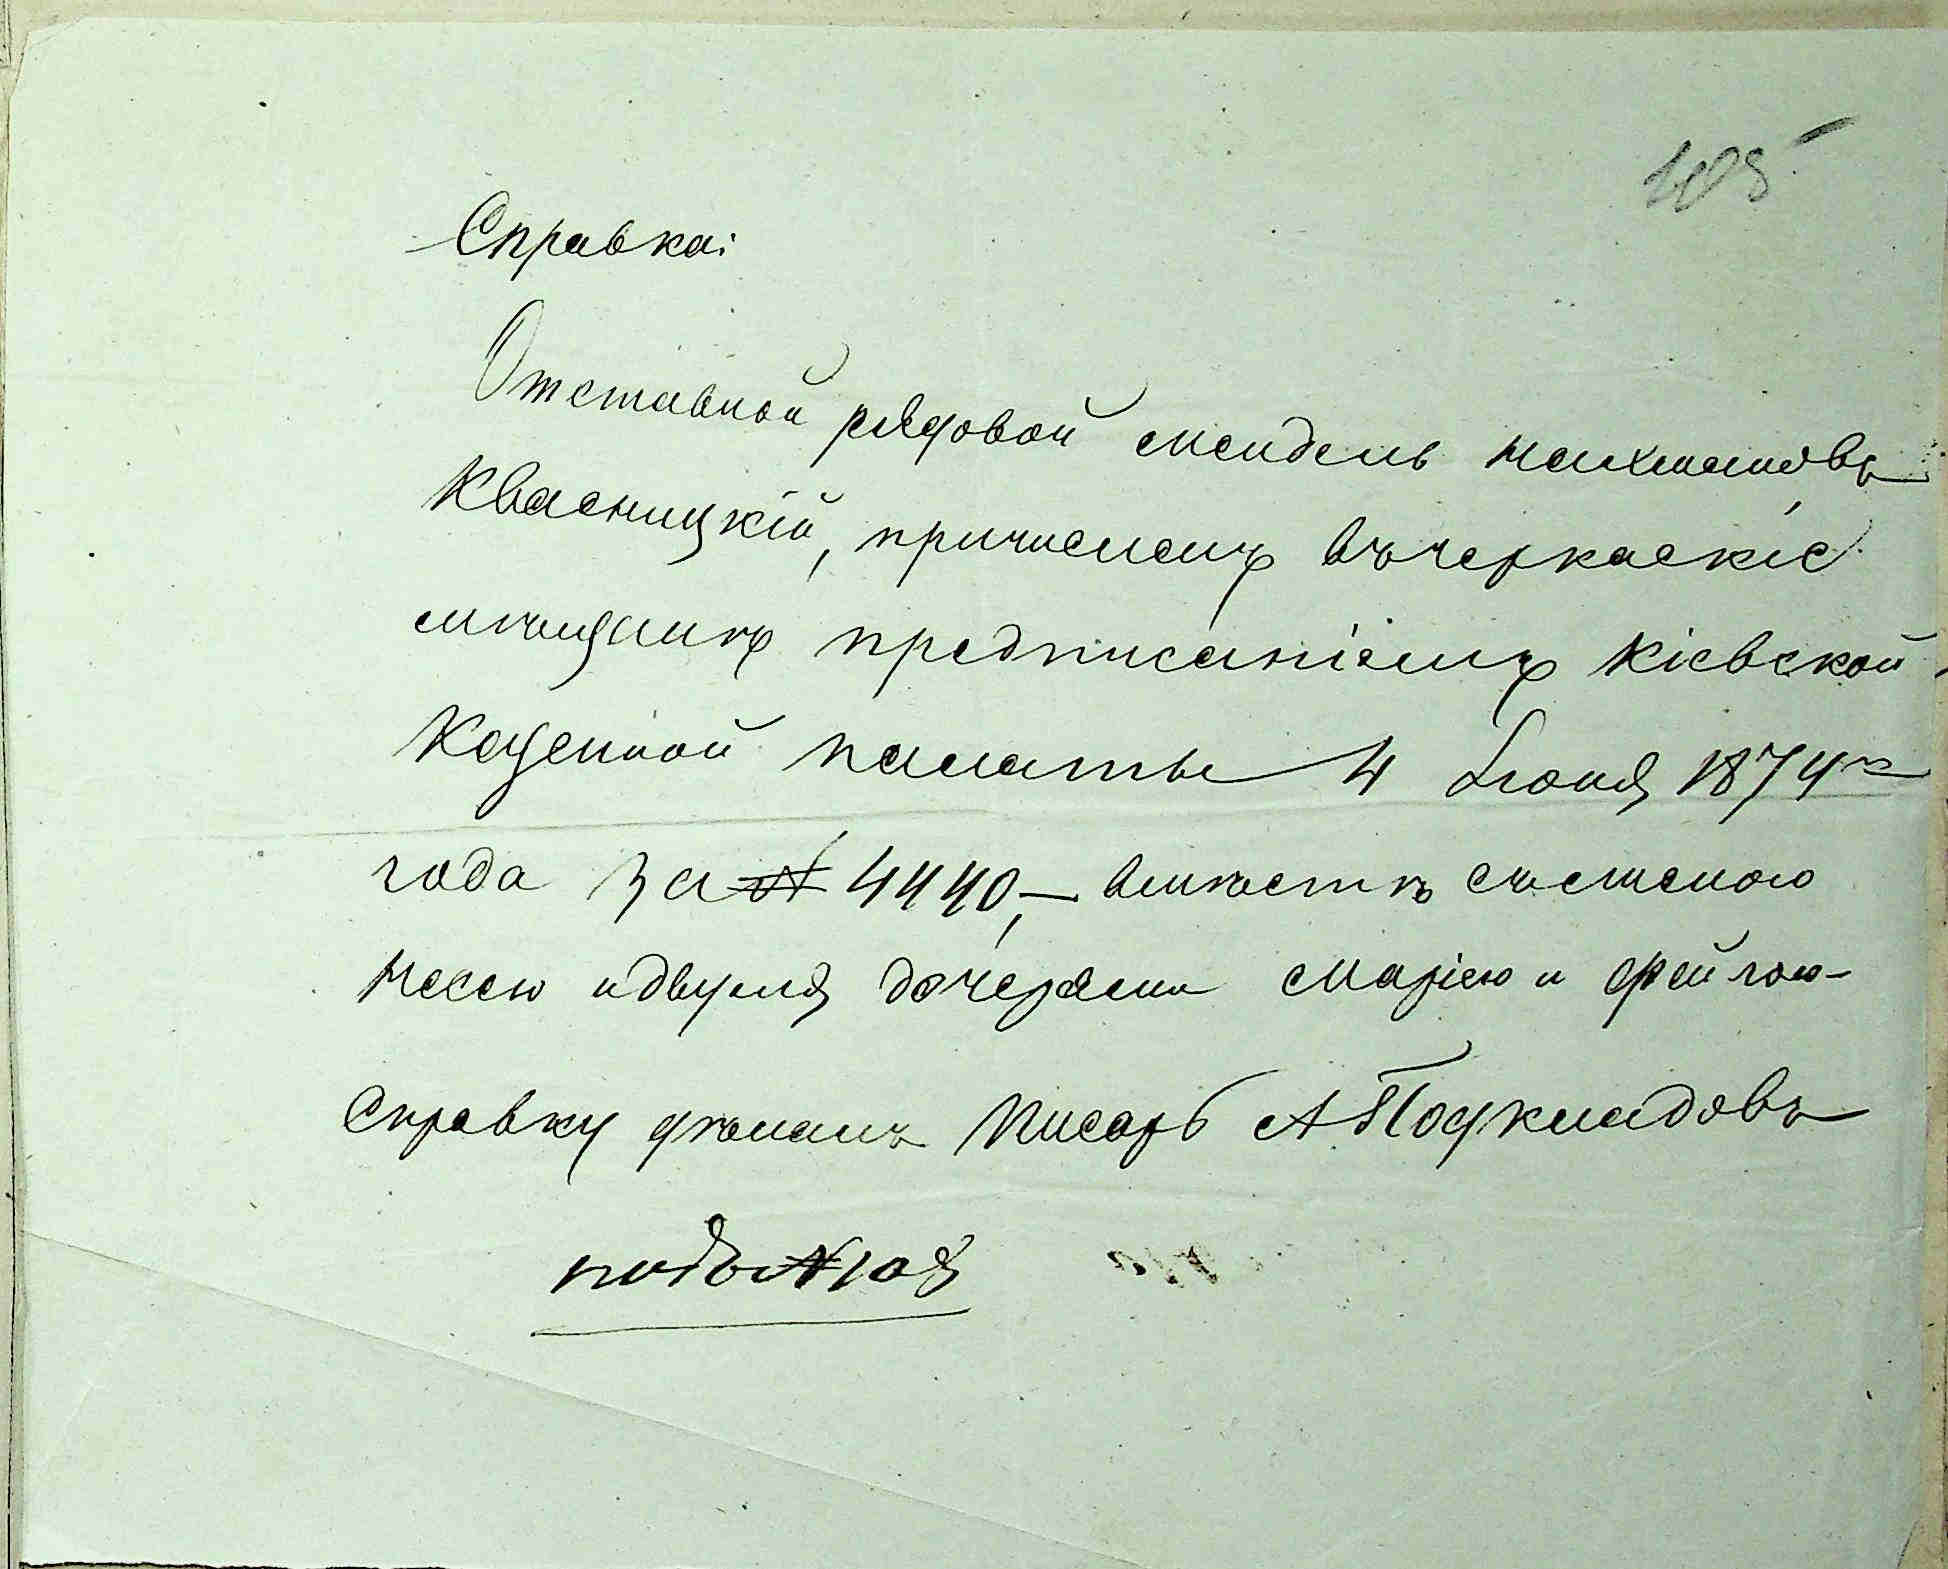 405
Справка:
Отставной рядовой Мендель Нахмановъ
Квасницкій, причисленъ въ черкаскіе
мѣщанѣ предписаніемъ Кіевской
Казенной палаты 4 Іюня 1874го
года за № 4440, – вмѣстѣ съ женою
Несею и двумя дочерями Маріею и Фейгою –
Справку дѣлалъ Писарь А Поукладовъ
подъ № 108